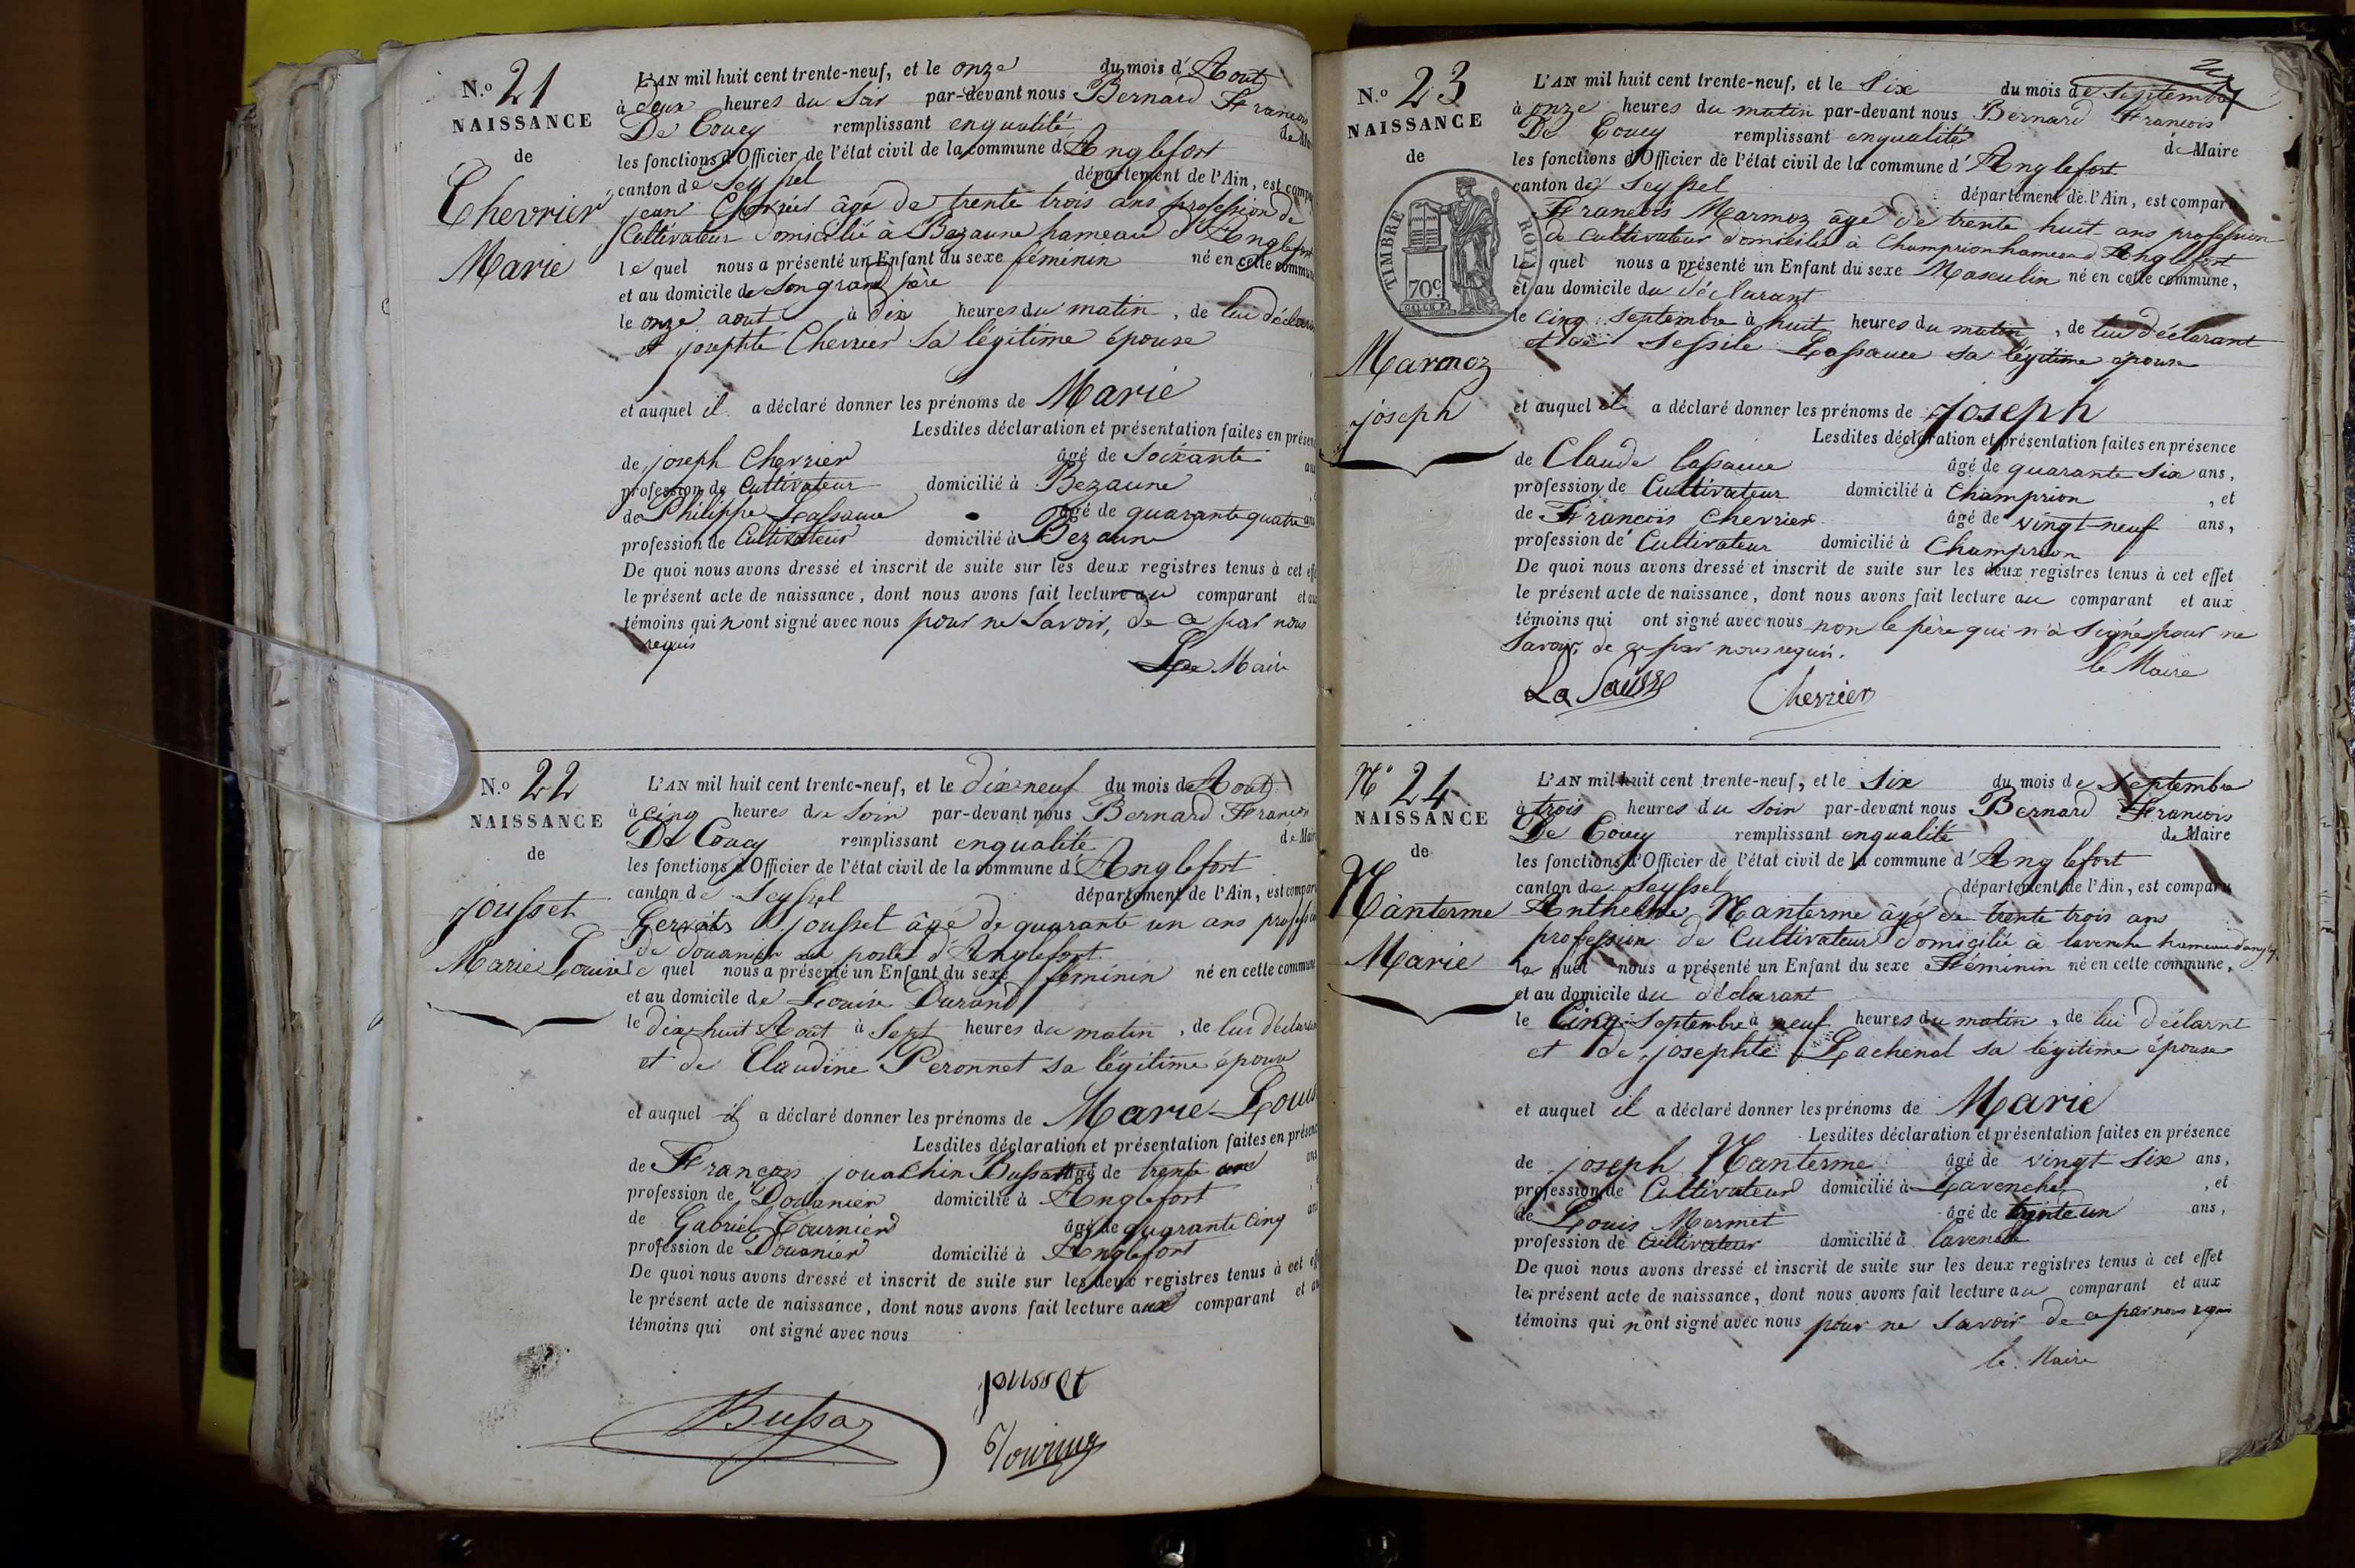 N.o 21
NAISSANCE
de
Chevrier
Marie
L'AN mil huit cent trente-neuf, et le onze du mois d'Aout
à deux heures du Soir par-devant nous Bernard Francois
De Coucy remplissant enqualité de
les fonctions d'Officier de l'état civil de la commune d'Anglefort
canton de Seyssel département de l'Ain, est
jean Chevrier âgé de trente trois ans profession de
Cultivateur domicilié à Bezaune hameau d'Anglefort
le quel nous a présenté un Enfant du sexe féminin né en cette
et au domicile de Son grand père
le onze aout à dix heures du matin, de lui
et josephte Chevrier sa légitime épouse
et auquel il a déclaré donner les prénoms de Marie
Lesdites déclaration et présentation faites en
de joseph Chevrier âgé de Soixante
profession de Cultivateur domicilié à Bezaune
de Philippe Lassauce âgé de quarante quatre
profession de Cultivateur domicilié à Bezaune
De quoi nous avons dressé et inscrit de suite sur les deux registres tenus à cet
le présent acte de naissance, dont nous avons fait lecture au comparant et
témoins qui n'ont signé avec nous pour ne Savoir, de ce par nous
requis
Le Maire
N.o 22
NAISSANCE
de
jousset
Marie Louise
L'AN mil huit cent trente-neuf, et le dix neuf du mois d'Aout
à cinq heures du Soir par-devant nous Bernard Francois
De Coucy remplissant enqualité de
les fonctions d'Officier de l'état civil de la commune d'Anglefort
canton de Seyssel département de l'Ain, est
Gervais jousset âgé de quarante un ans
de douanier au poste d'Anglefort
le quel nous a présenté un Enfant du sexe féminin né en cette
et au domicile de Louise Durand
le dix-huit Août à Sept heures du matin, de lui
et de Claudine Peronnet sa légitime épouse
et auquel il a déclaré donner les prénoms de Marie Louis
Lesdites déclaration et présentation faites en
de Francois jouachin Bussat âgé de trente
profession de Douanier domicilié à Anglefort
de Gabriel Tournier âgé de quarante Cinq
profession de Douanier domicilié à Anglefort
De quoi nous avons dressé et inscrit de suite sur les deux registres tenus à cet
le présent acte de naissance, dont nous avons fait lecture aux comparant et
témoins qui ont signé avec nous
jousset
Bussa
N.o 23
NAISSANCE
de
TIMBRE ROYAL
70c.
Marmoz
joseph
L'AN mil huit cent trente-neuf, et le Six du mois de Septembre
à onze heures du matin par-devant nous Bernard Francois
De Coucy remplissant enqualité de Maire
les fonctions d'Officier de l'état civil de la commune d'Anglefort
canton de Seyssel département de l'Ain, est comparu
Francois Marmoz âgé de trente huit ans profession
de Cultivateur domicilié à Champrion hameau d'Anglefort
le quel nous a présenté un Enfant du sexe Masculin né en cette commune,
et au domicile du déclarant
le Cinq Septembre à huit heures du matin, de lui déclarant
et de Sessile Lassauce sa légitime épouse
et auquel il a déclaré donner les prénoms de joseph
Lesdites déclaration et présentation faites en présence
de Claude Lassauce âgé de quarante Six ans,
profession de Cultivateur domicilié à Champrion, et
de Francois Chevrier âgé de vingt-neuf ans,
profession de Cultivateur domicilié à Champrion
De quoi nous avons dressé et inscrit de suite sur les deux registres tenus à cet effet
le présent acte de naissance, dont nous avons fait lecture au comparant et aux
témoins qui ont signé avec nous non le père qui n'a signé pour ne
Savoir, de ce par nous requis.
le Maire
La Sausse Chevrier
N.o 24
NAISSANCE
de
Nanterme
Marie
L'AN mil huit cent trente-neuf, et le Six du mois de Septembre
à trois heures du Soir par-devant nous Bernard Francois
De Coucy remplissant enqualité de Maire
les fonctions d'Officier de l'état civil de la commune d'Anglefort
canton de Seyssel département de l'Ain, est comparu
Anthelme Nanterme âgé de trente trois ans
profession de Cultivateur domicilié à lavenche hameau
le quel nous a présenté un Enfant du sexe Féminin né en cette commune,
et au domicile du déclarant
le Cinq Septembre à neuf heures du matin, de lui déclarnt
et de josephte Lachenal sa légitime épouse
et auquel il a déclaré donner les prénoms de Marie
Lesdites déclaration et présentation faites en présence
de joseph Nanterme âgé de vingt Six ans,
profession de Cultivateur domicilié à Lavenche, et
de Louis Mermet âgé de trente un ans,
profession de Cultivateur domicilié à lavenche
De quoi nous avons dressé et inscrit de suite sur les deux registres tenus à cet effet
le présent acte de naissance, dont nous avons fait lecture au comparant et aux
témoins qui n'ont signé avec nous pour ne Savoir de ce par nous requis
le Maire